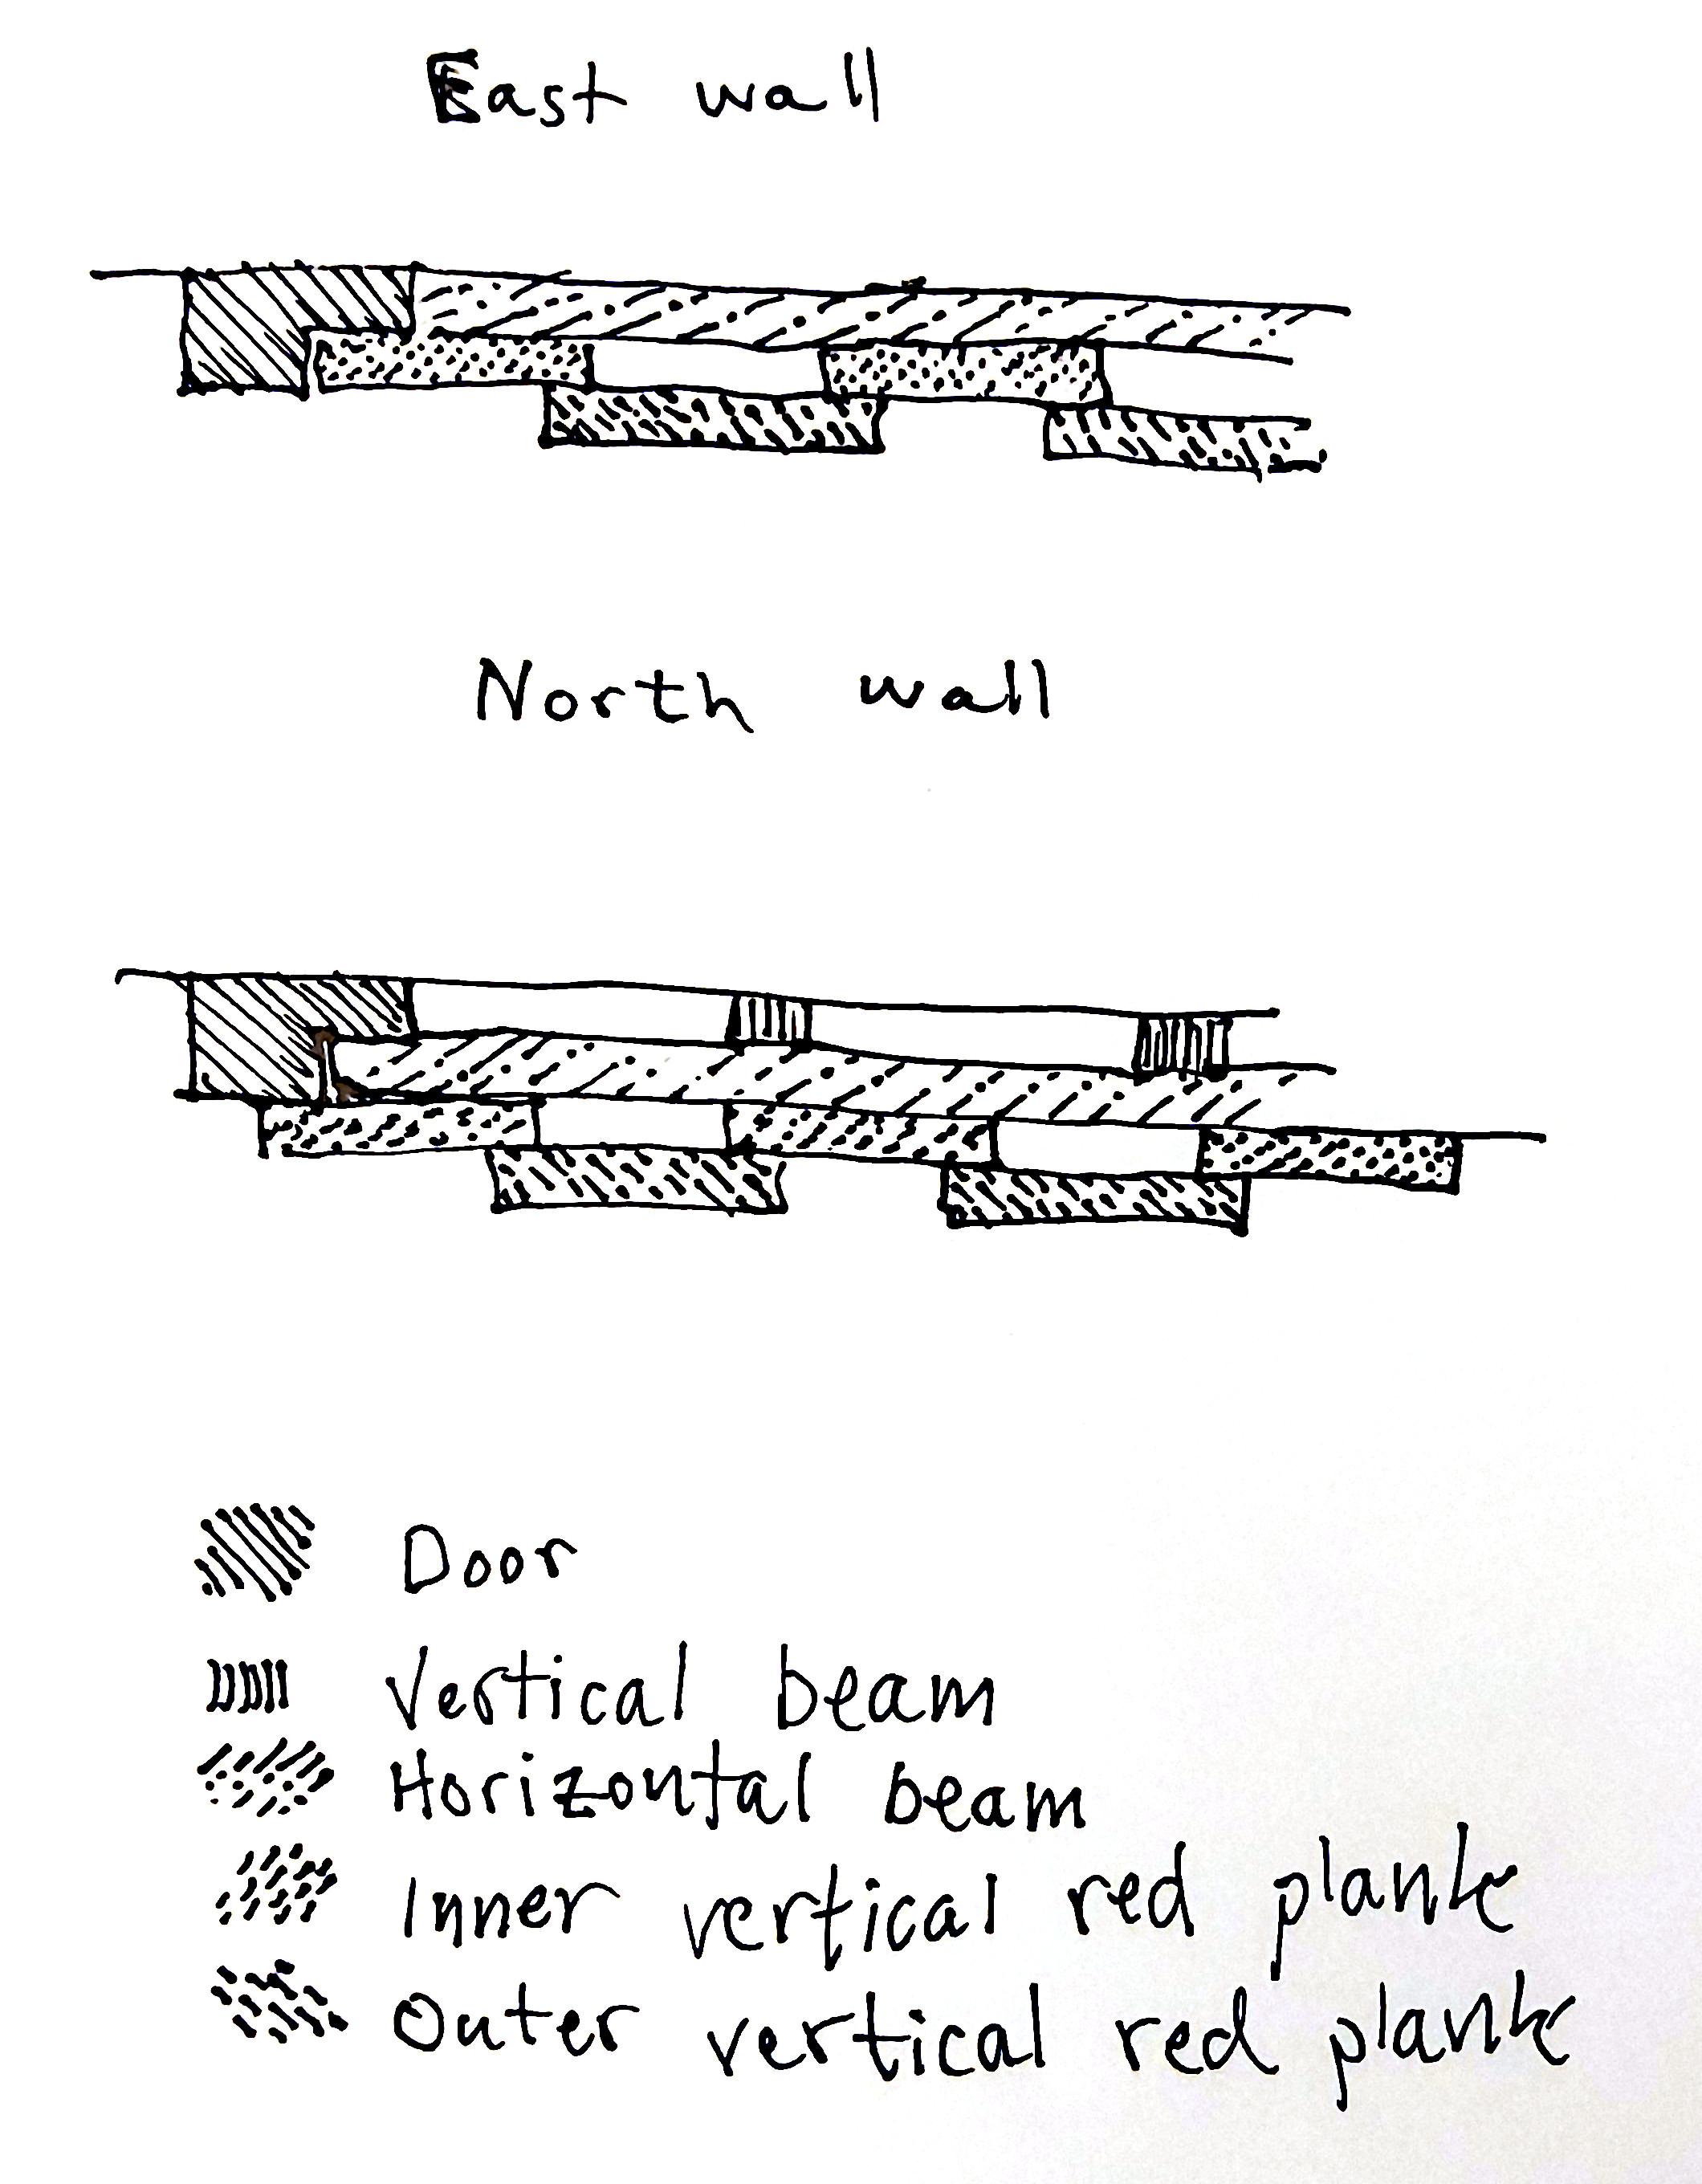 East wall
North wall
Door
Vertical beam
Horizontal beam
Inner vertical red plank
Outer vertical red plank